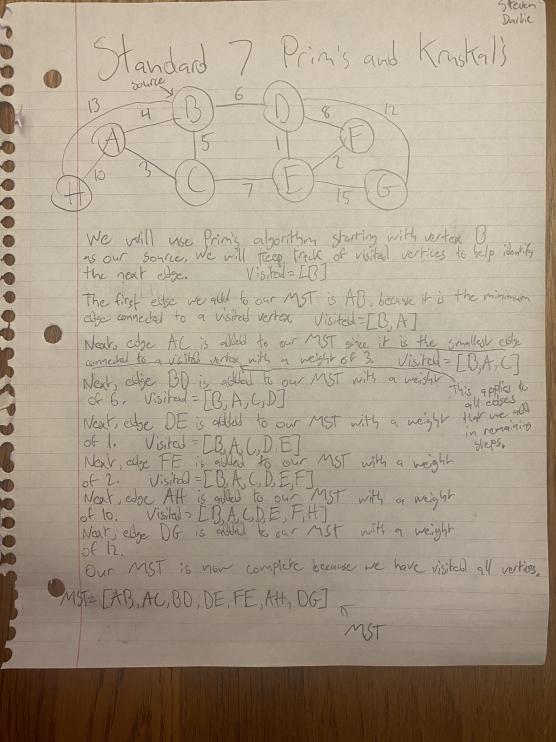 Steven
Darlie
Standard 7 Prim's and Kruskal's
source
13
4
B
6
D
8
12
A
5
1
F
10
3
2
H
C
7
E
15
G
We will use Prim's algorithm starting with vertex B
as our source, we will keep track of visited vertices to help identify
the next edge. Visited = [B]
The first edge we add to our MST is AB, because it is the minimum
edge connected to a visited vertex Visited = [B,A]
Next, edge AC is added to our MST since it is the smallest edge
connected to a visited vertex with a weight of 3. Visited = [B,A,C]
Next, edge BD is added to our MST with a weight
of 6. Visited = [B,A,C,D]
This applies to
all edges
that we add
in remaining
steps.
Next, edge DE is added to our MST with a weight
of 1. Visited = [B,A,C,D,E]
Next, edge FE is added to our MST with a weight
of 2. Visited = [B,A,C,D,E,F]
Next, edge AH is added to our MST with a weight
of 10. Visited = [B,A,C,D,E,F,H]
Next, edge DG is added to our MST with a weight
of 12.
Our MST is now complete because we have visited all vertices.
MST = [AB, AC, BD, DE, FE, AH, DG]
MST